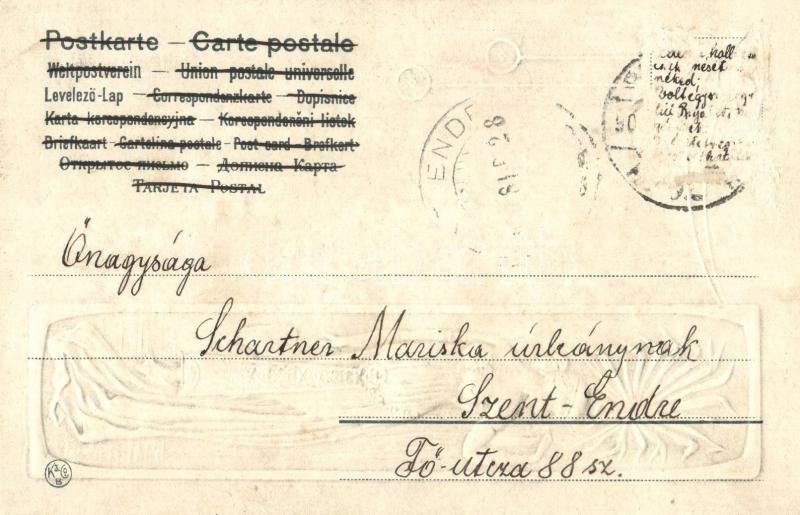 Postkarte — Carte postale
Weltpostverein — Union postale universelle
Levelező-Lap — Correspondenzkarte — Dopisnice
Karta korespondencyjna — Korespondenční listek
Briefkaart — Cartolina postale — Post card — Brefkort
Открытое письмо — Дописна Карта
Tarjeta Postal
hall
meset
néked
ENDR
8
Őnagysága
Schartner Mariska úrleánynak
Szent-Endre
Fő-utcza 88 sz.
K & Co
B